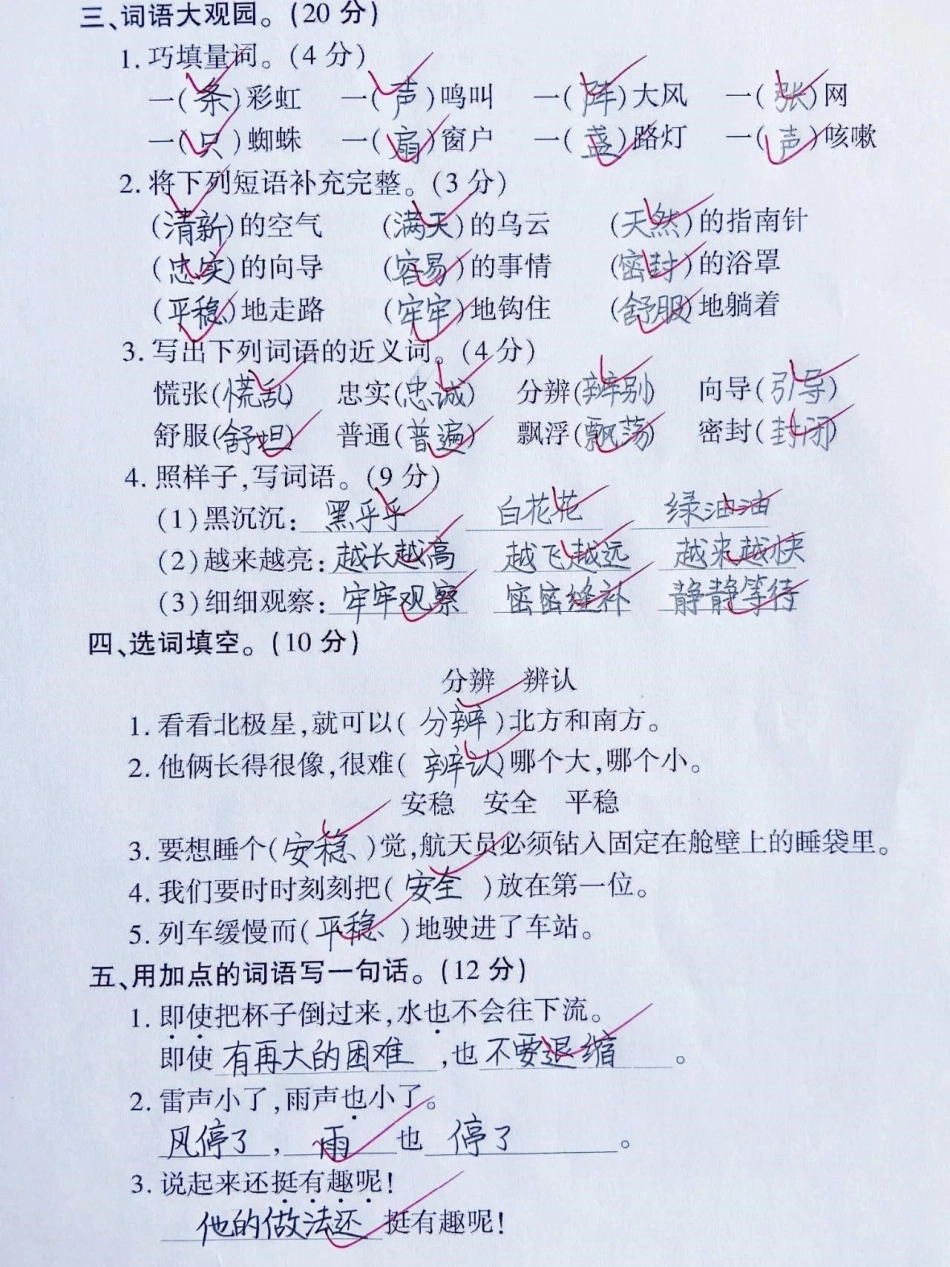 三、词语大观园。(20 分)
1. 巧填量词。(4 分)
一(条)彩虹 一(声)鸣叫 一(阵)大风 一(张)网
一(只)蜘蛛 一(扇)窗户 一(盏)路灯 一(声)咳嗽
2. 将下列短语补充完整。(3 分)
(清新)的空气 (满天)的乌云 (天然)的指南针
(忠实)的向导 (容易)的事情 (密封)的浴罩
(平稳)地走路 (牢牢)地钩住 (舒服)地躺着
3. 写出下列词语的近义词。(4 分)
慌张(慌乱) 忠实(忠诚) 分辨(辨别) 向导(引导)
舒服(舒坦) 普通(普遍) 飘浮(飘荡) 密封(封闭)
4. 照样子,写词语。(9 分)
(1)黑沉沉: 黑乎乎 白花花 绿油油
(2)越来越亮: 越长越高 越飞越远 越来越快
(3)细细观察: 牢牢观察 密密缝补 静静等待
四、选词填空。(10 分)
分辨 辨认
1. 看看北极星,就可以(分辨)北方和南方。
2. 他俩长得很像,很难(辨认)哪个大,哪个小。
安稳 安全 平稳
3. 要想睡个(安稳)觉,航天员必须钻入固定在舱壁上的睡袋里。
4. 我们要时时刻刻把(安全)放在第一位。
5. 列车缓慢而(平稳)地驶进了车站。
五、用加点的词语写一句话。(12 分)
1. 即使把杯子倒过来,水也不会往下流。
即使有再大的困难,也不要退缩。
2. 雷声小了,雨声也小了。
风停了,雨也停了。
3. 说起来还挺有趣呢!
他的做法还挺有趣呢!